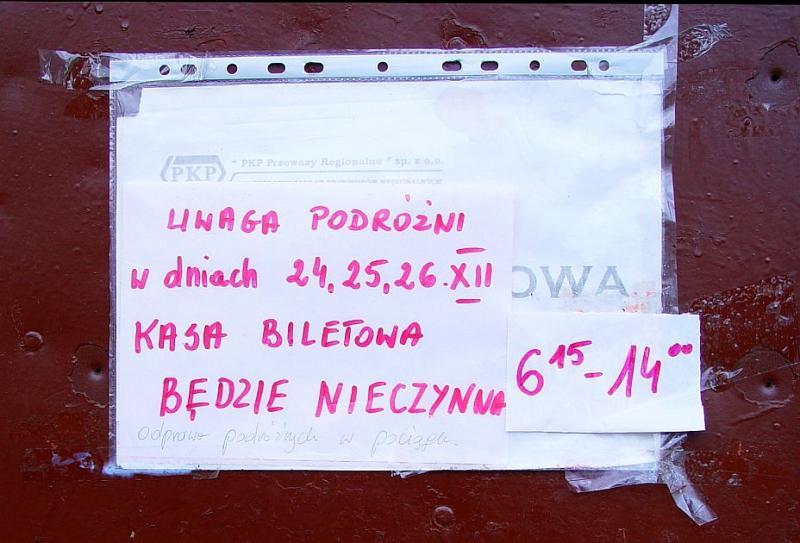 PKP " PKP Przewozy Regionalne " sp. z o.o.
UWAGA PODRÓŻNI
w dniach 24, 25, 26. XII
OWA
KASA BILETOWA
BĘDZIE NIECZYNNA
6¹⁵ - 14⁰⁰
odprawa podróżnych w pociągu.